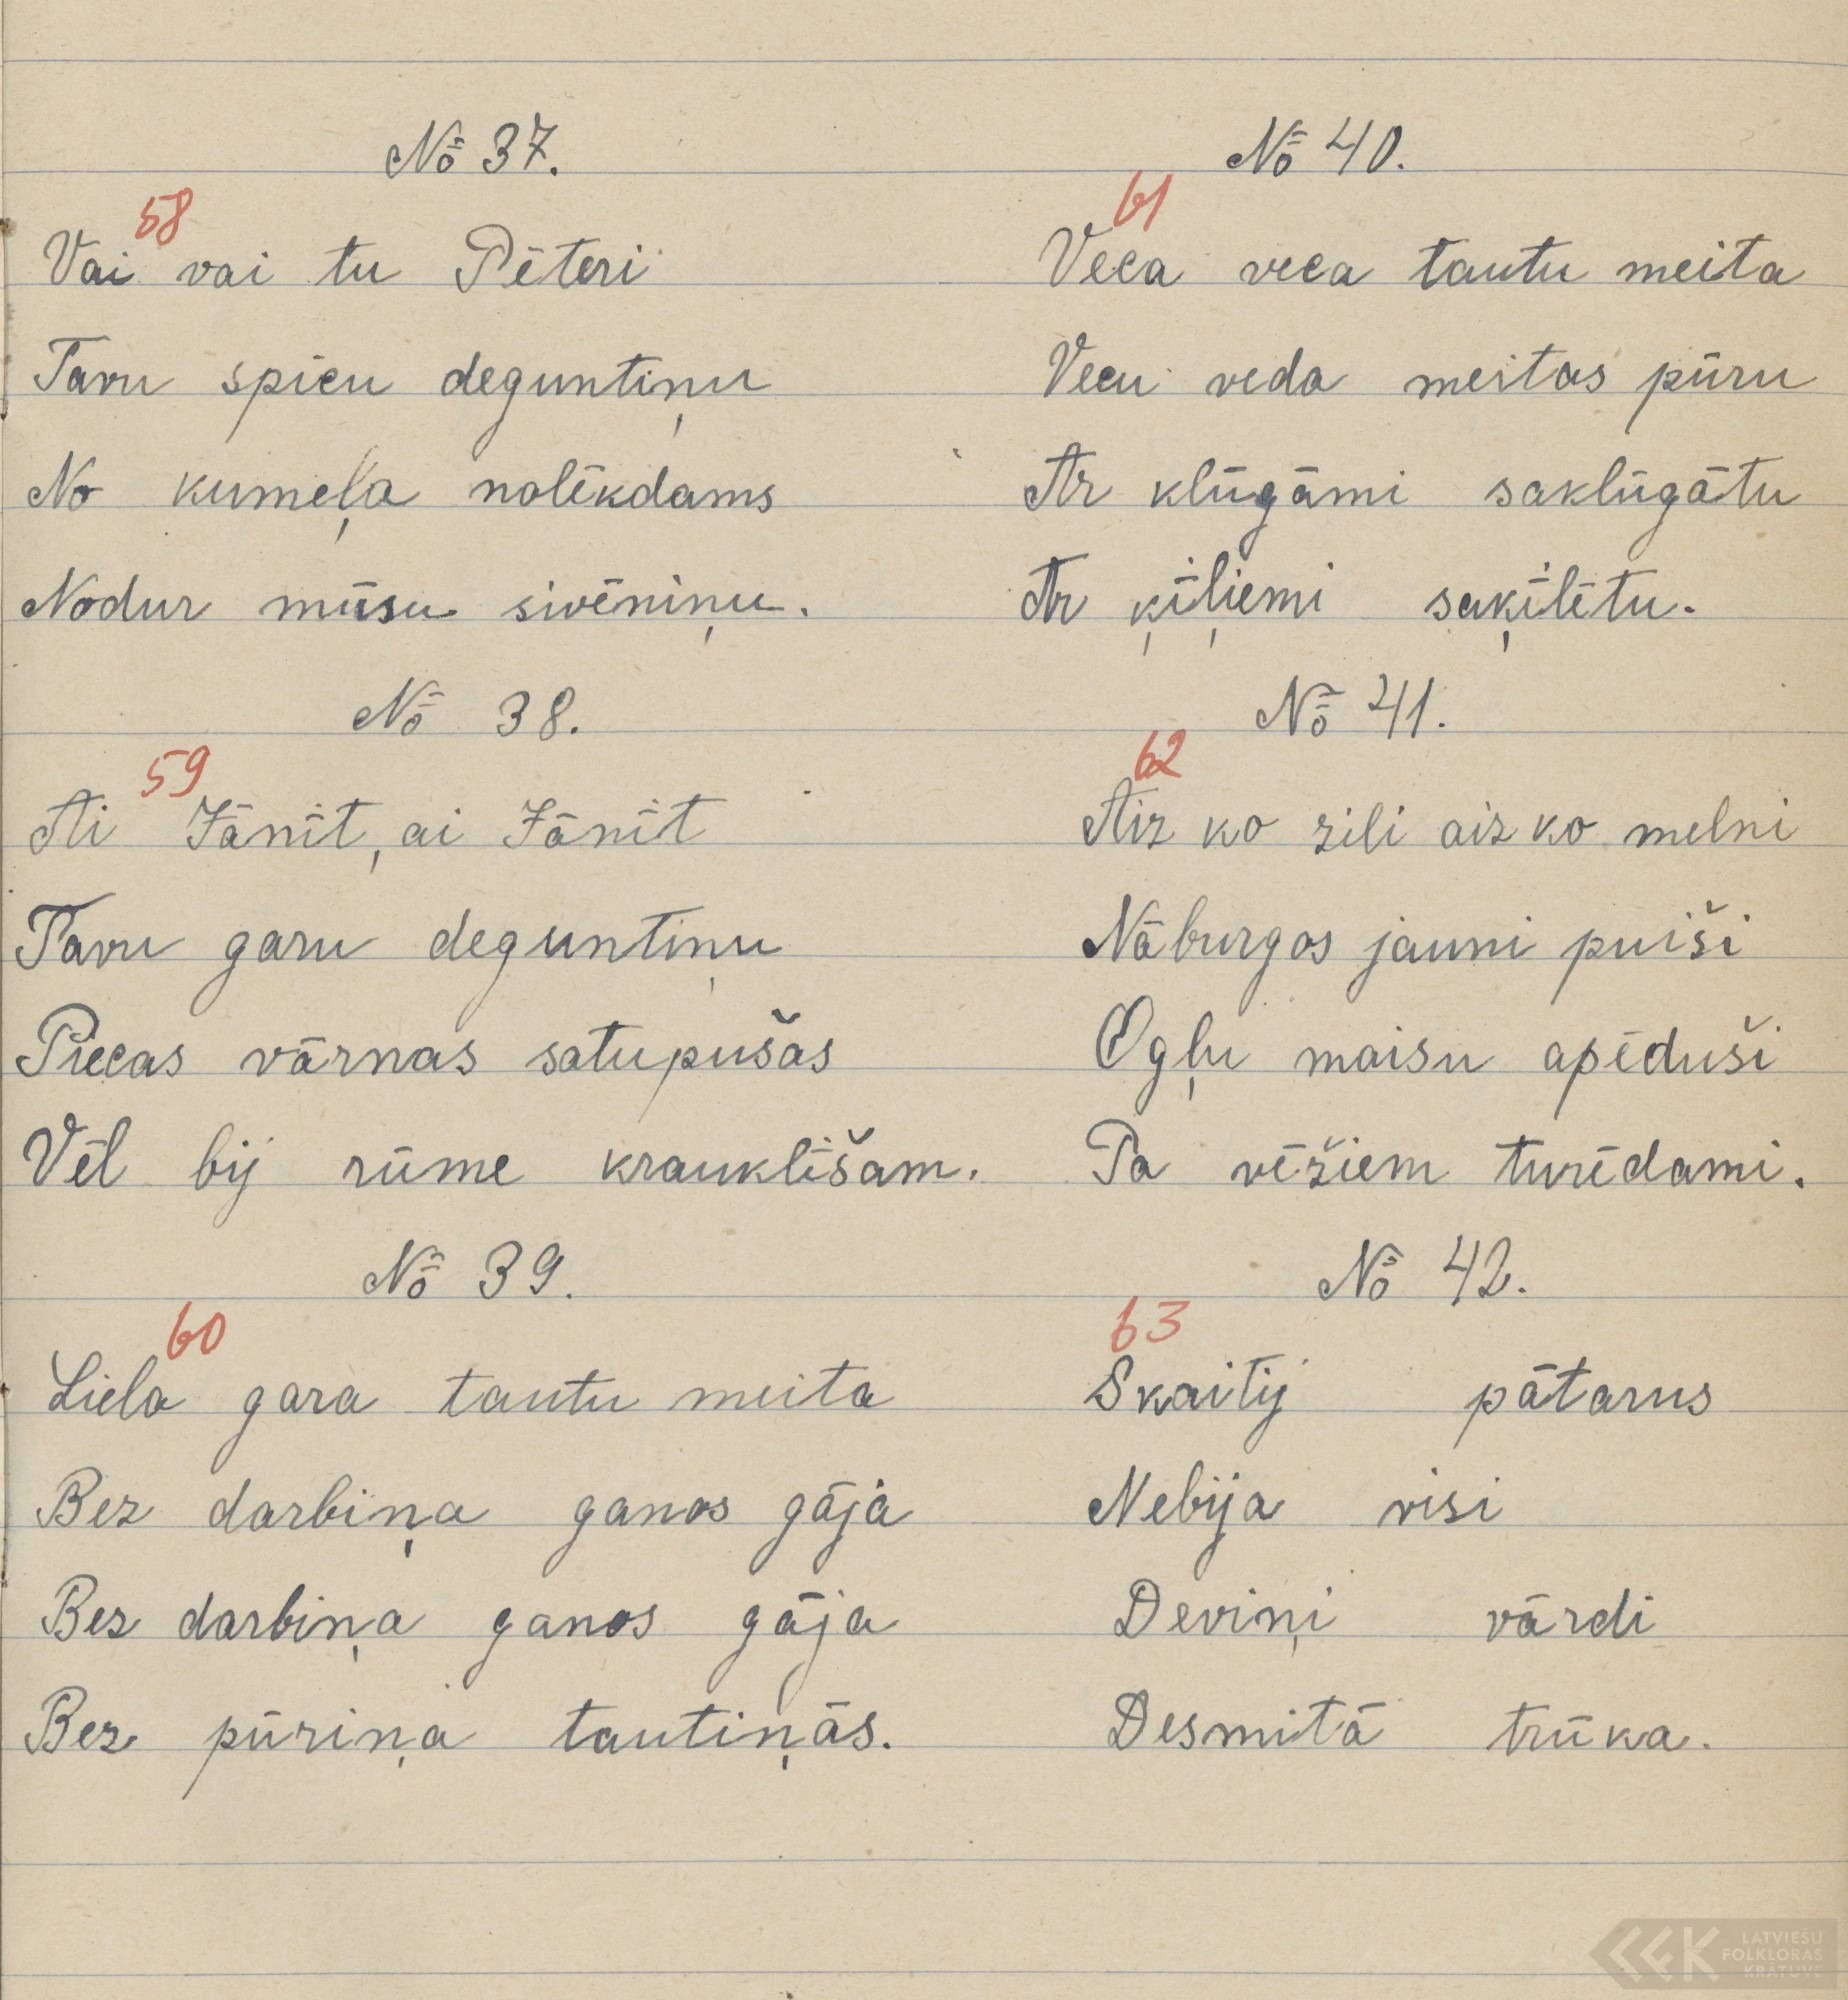 No 37.
58
Vai vai tu Pēteri
Tavu spicu deguntiņu
No kumeļa nolēkdams
Nodur mūsu sivēniņu.
No 38.
59
Ai Jānīt, ai Jānīt
Tavu garu deguntiņu
Piecas vārnas satupušas
Vēl bij rūme krauklīšam.
No 39.
60
Liela gara tautu meita
Bez darbiņa ganos gāja
Bez darbiņa ganos gāja
Bez pūriņa tautiņās.
No 40.
61
Veca veca tautu meita
Vecu veda meitas pūru
Ar klūgāmi saklūgātu
Ar ķīļiemi saķīlētu.
No 41.
62
Aiz ko zili aiz ko melni
Nāburgos jauni puiši
Ogļu maisu apēduši
Pa vēžiem turēdami.
No 42.
63
Skaitij pātarus
Nebija visi
Deviņi vārdi
Desmitā trūka.
LATVIEŠU
FOLKLORAS
KRĀTUVE